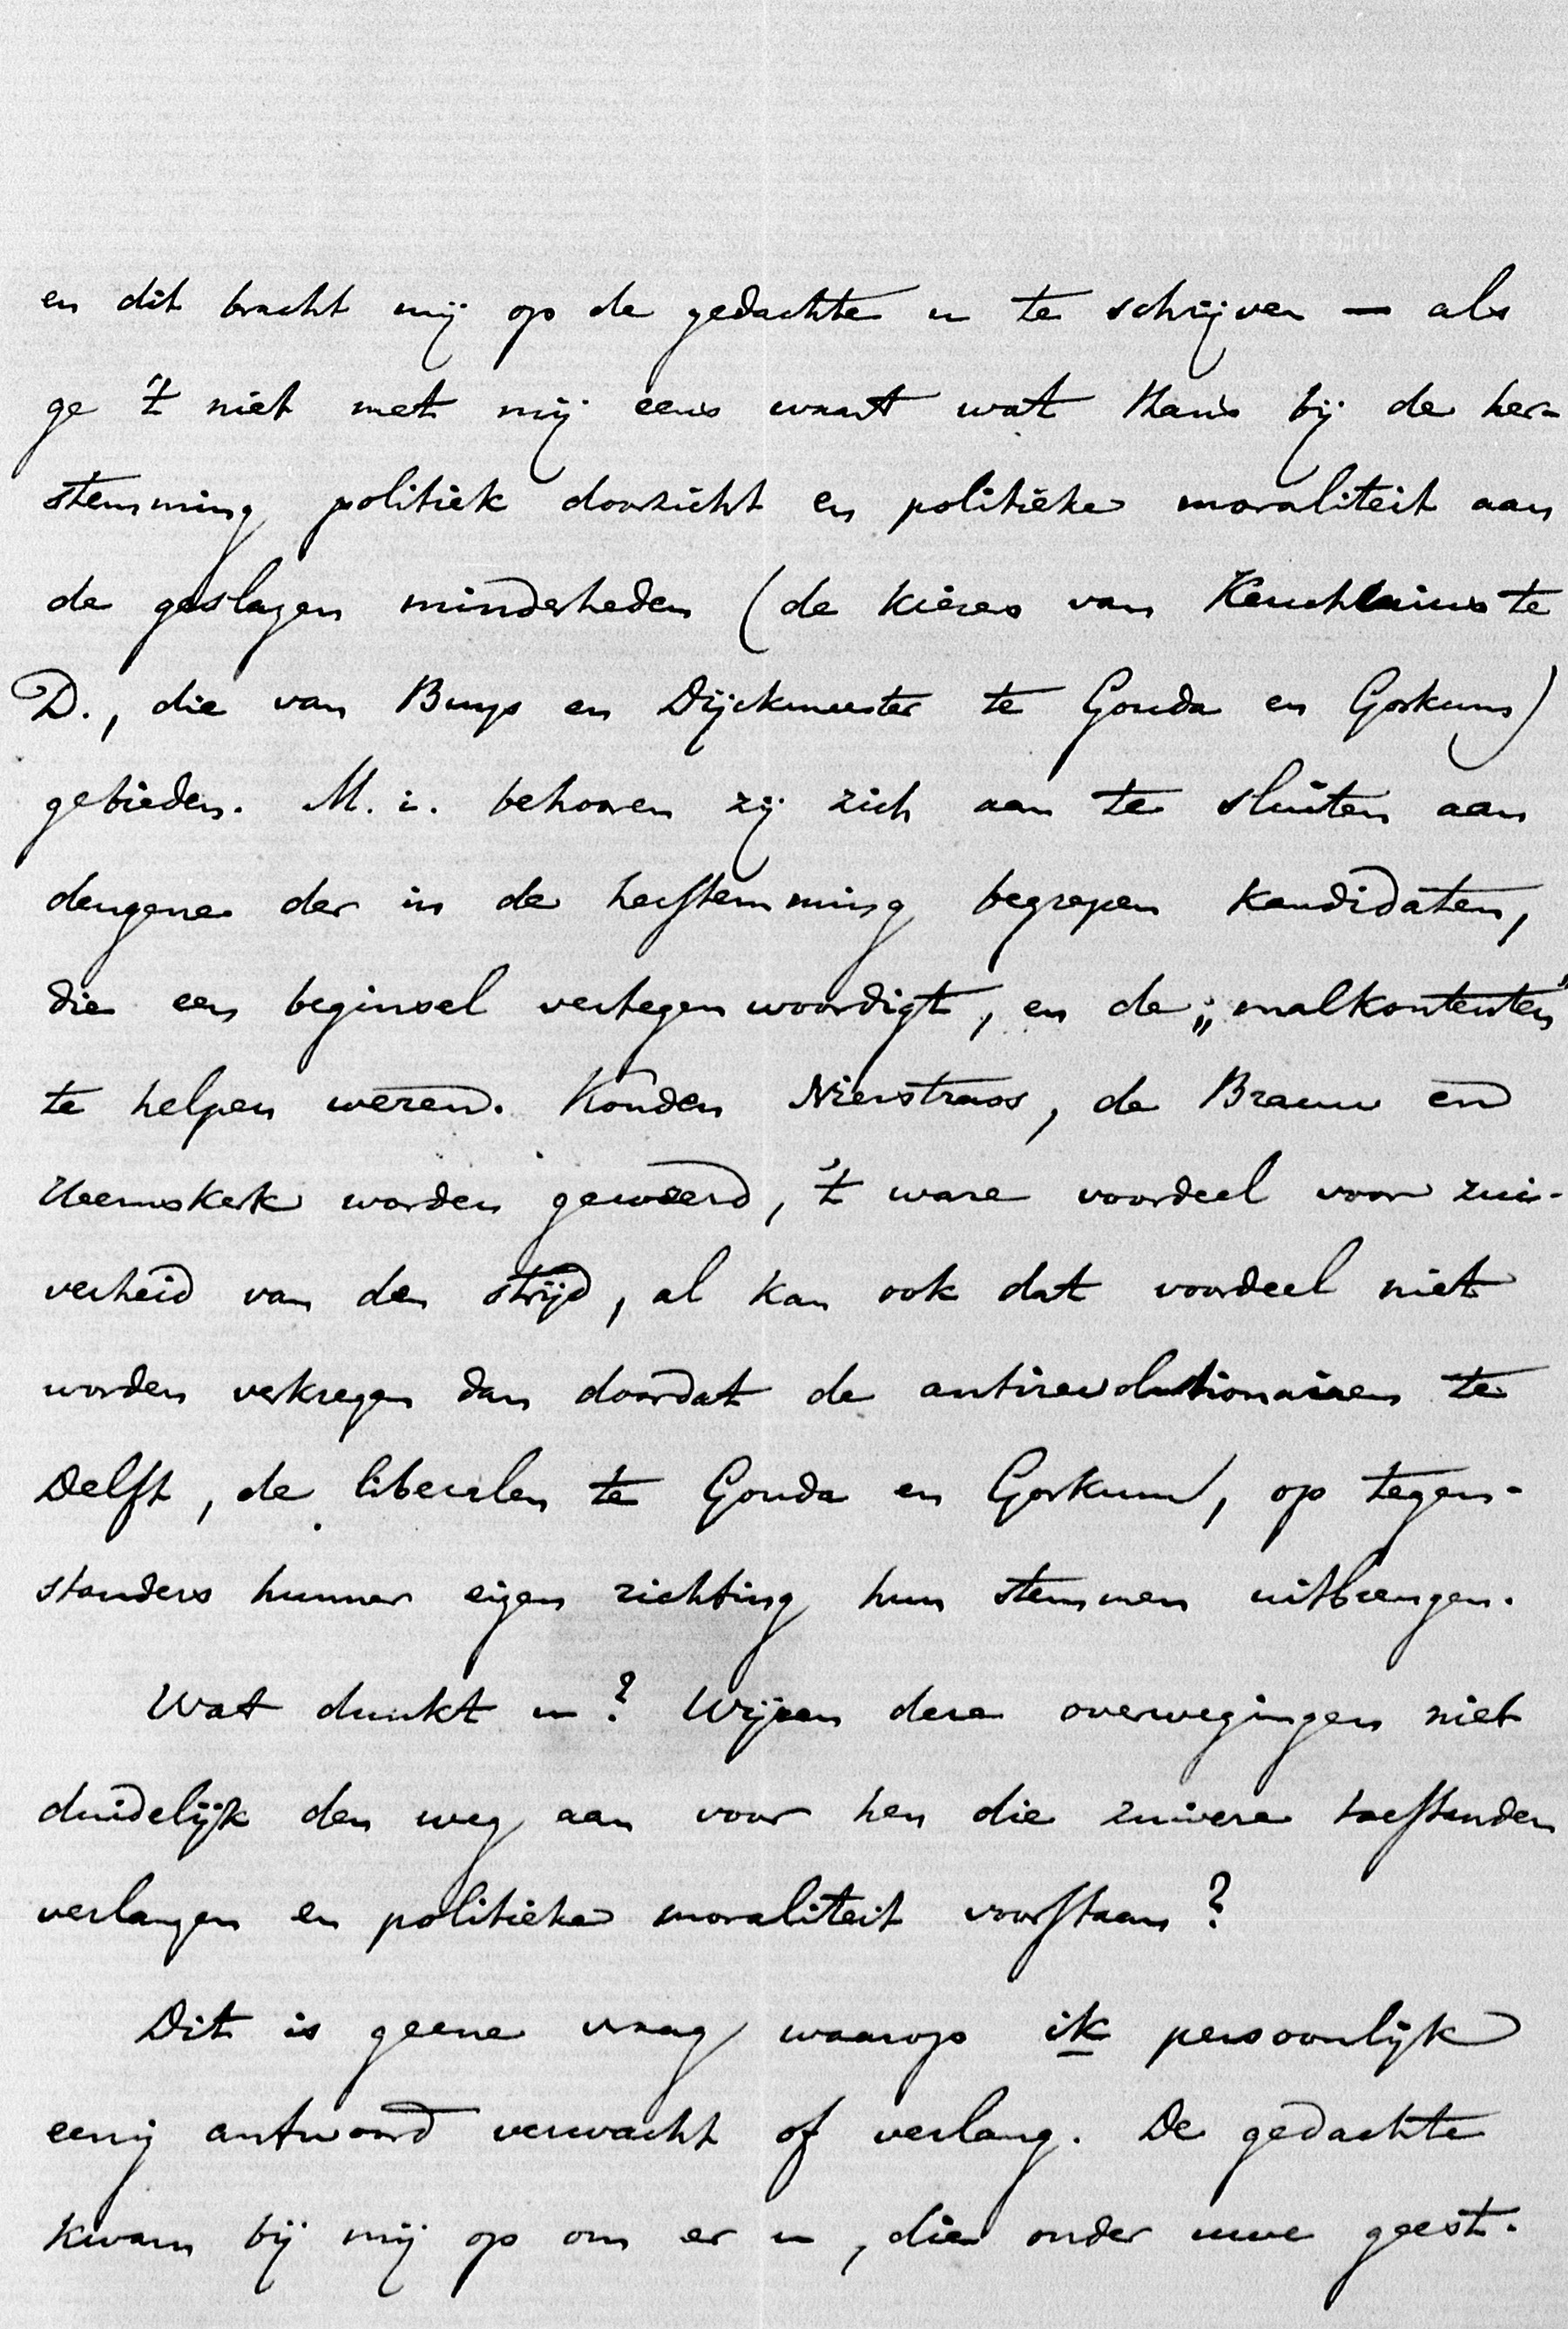 en dit bracht mij op de gedachte u te schrijven — als
ge 't niet met mij eens waart wat thans bij de her-
stemming politiek doorzicht en politieke moraliteit aan
de geslagen minderheden (de kiezers van Keuchenius te
D., die van Buys en Dijckmeester te Gouda en Gorkum)
gebieden. M. i. behooren zij zich aan te sluiten aan
dengene der in de herstemming begrepen kandidaten,
die een beginsel vertegenwoordigt, en de „malkontenten"
te helpen weren. Konden Nierstrasz, de Brauw en
Heemskerk worden geweerd, 't ware voordeel voor zui-
verheid van den strijd, al kan ook dat voordeel niet
worden verkregen dan doordat de antirevolutionairen te
Delft, de liberalen te Gouda en Gorkum, op tegen-
standers hunner eigen richting hun stemmen uitbrengen.
Wat dunkt u? Wijzen deze overwegingen niet
duidelijk den weg aan voor hen die zuivere toestanden
verlangen en politieke moraliteit voorstaan?
Dit is geene vraag waarop ik persoonlijk
eenig antwoord verwacht of verlang. De gedachte
kwam bij mij op om er u, die onder uwe geest-